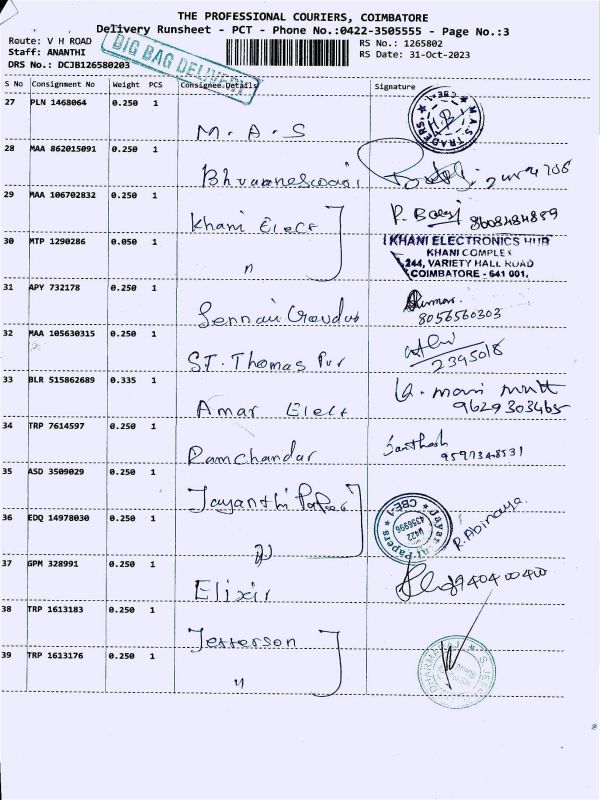 THE PROFESSIONAL COURIERS, COIMBATORE
Delivery Runsheet - PCT - Phone No.:0422-3505555 - Page No.:3
Route: V H ROAD
Staff: ANANTHI
DRS No.: DCJB126580203
BIG BAG DELIVERY
RS No.: 1265802
RS Date: 31-Oct-2023
S No Consignment No Weight PCS Consignee Details Signature
27 PLN 1468064 0.250 1 M.A.S
M.A.S TRADERS CBE-1
28 MAA 862015091 0.250 1
29 MAA 106702832 0.250 1 Khani Elect 8608484889
30 MTP 1290286 0.050 1 "
KHANI ELECTRONICS HUB
KHANI COMPLEX
244, VARIETY HALL ROAD
COIMBATORE - 641 001.
31 APY 732178 0.250 1
8056560303
32 MAA 105630315 0.250 1 ST. Thomas Pur
2395018
33 BLR 515862689 0.335 1 Amar Elect
9629303465
34 TRP 7614597 0.250 1 Ramchandar Santhosh
9597348531
35 ASD 3509029 0.250 1 Jayanthi Papers
36 EDQ 14978030 0.250 1 "
0422 4356996
R. Abinaya
37 GPM 328991 0.250 1 Elixir
38 TRP 1613183 0.250 1 Jefferson
39 TRP 1613176 0.250 1 "